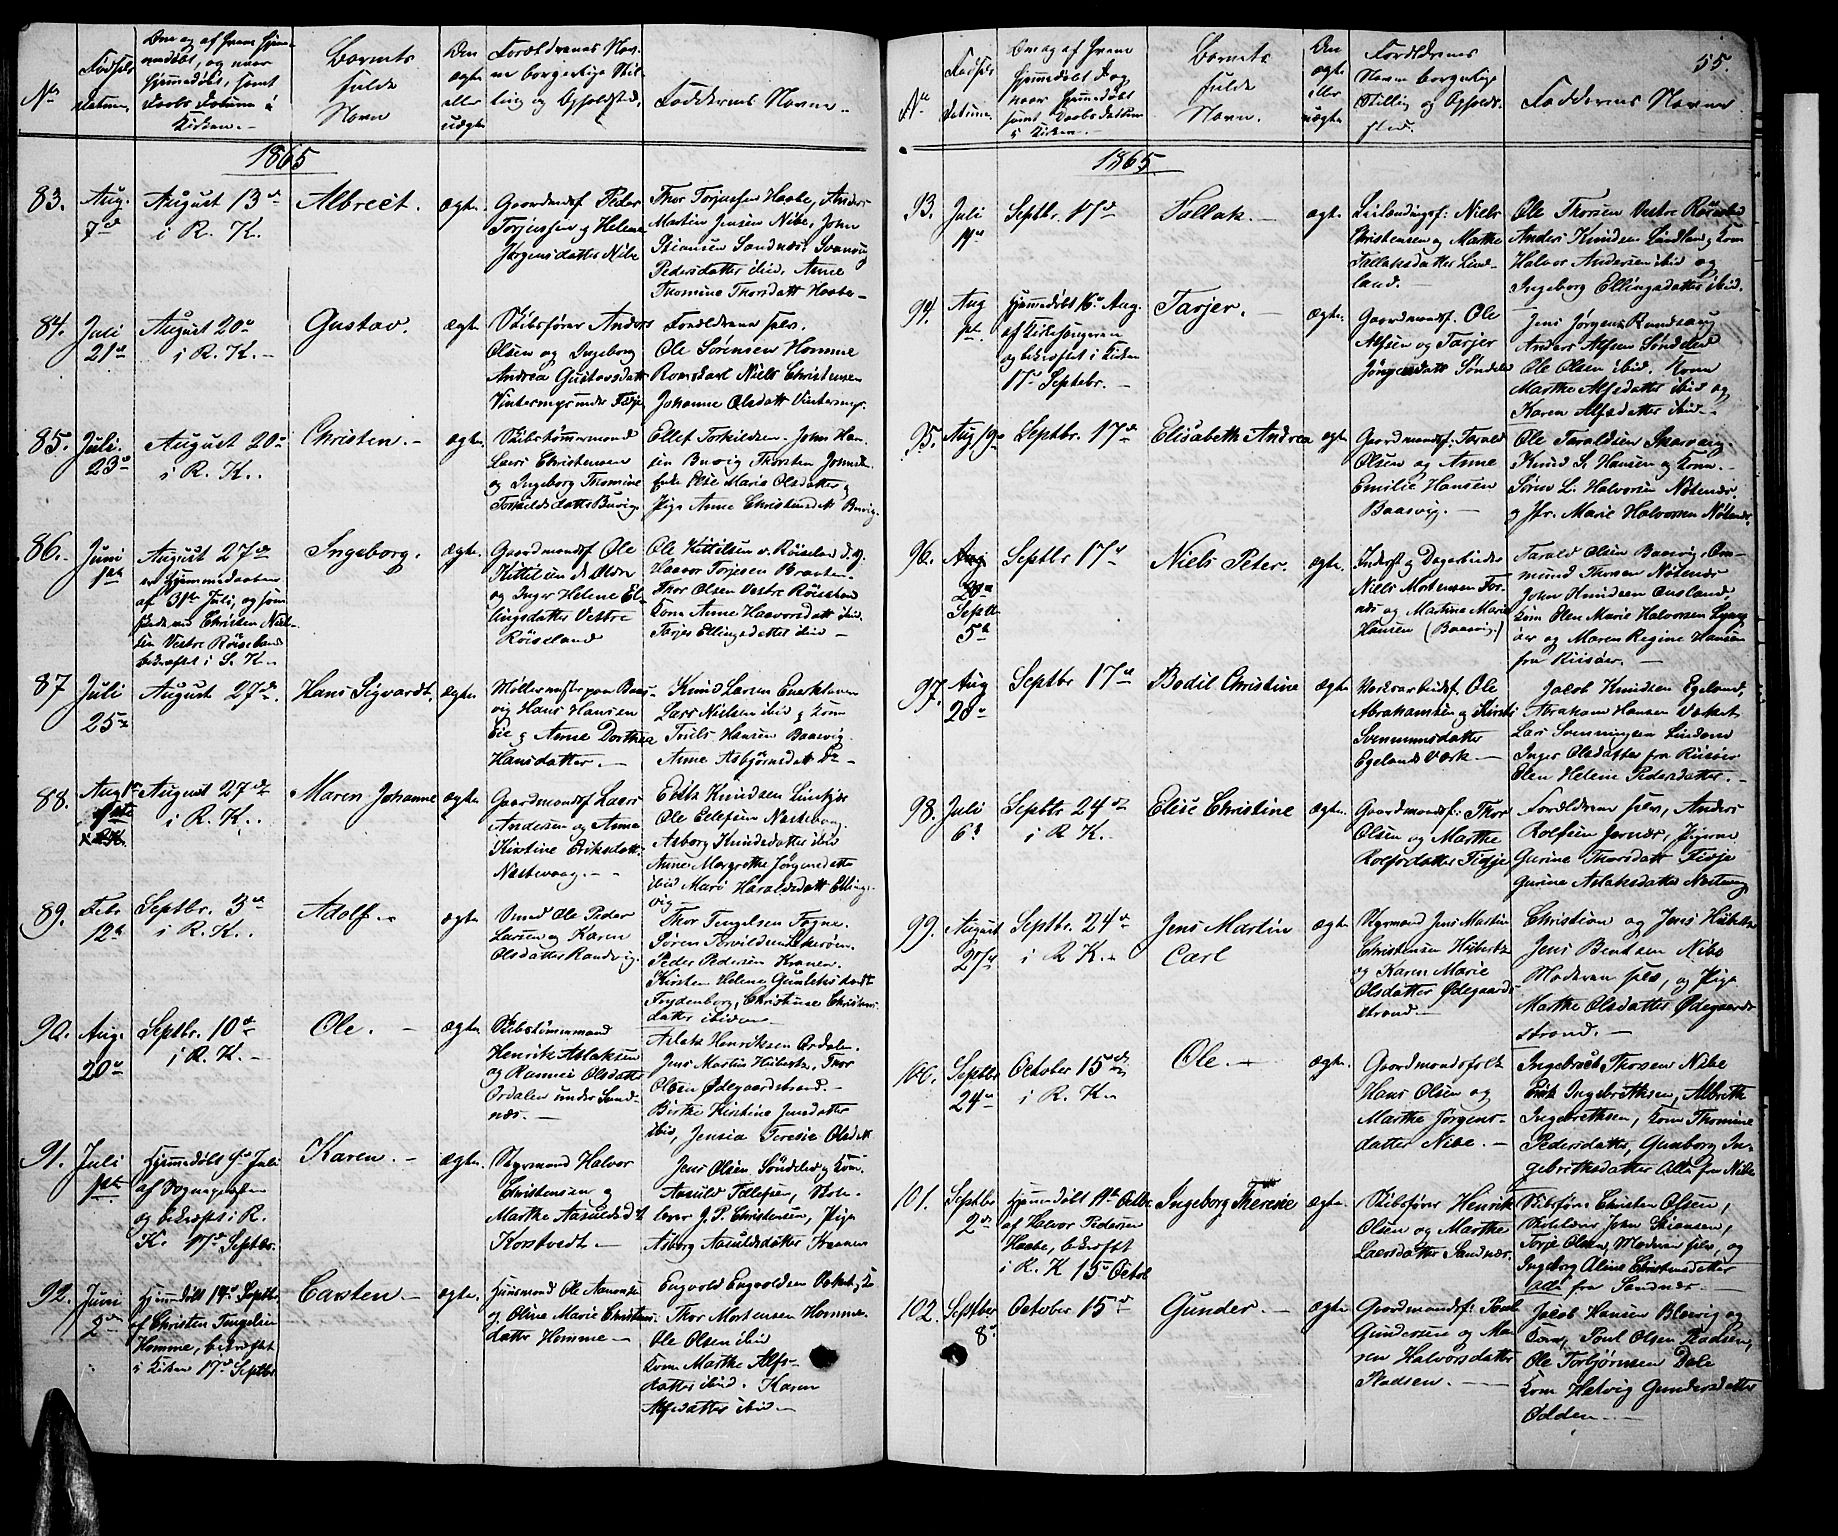 55.
No
Fødsels
datum.
Om og af hvem hjem-
medøbt, og naar
hjemmedøbt, samt
Daabs Datum i
Kirken.
Barnets
fulde
Navn
Den
ægte
eller
uægte
Forældrenes Nav-
ne borgerlige Stil-
ling og Opholdsted.
Faddernes Navne.
1865
83.
Aug.
7de
August 13de
i R. K.
Albrect.
ægte.
Gaardmandsf. Peder
Terjussen og Helene
Jørgensdatter Nibe
Thor Terjussen Haabe, Anders
Martin Jensen Nibe, John
Stiansen Sandnæs, Svanaug
Pedersdatter ibid, Anne
Thomine Thorsdatt Haabe
84.
Juli
21de
August 20de
i R. K.
Gustav.
ægte
Skibsfører Anders
Olsen og Ingeborg
Andrea Gustavsdatt
Vintermyr under Fidje
Forældrene selv.
Ole Sørensen Homme
Niels Christensen
Johanne Olsdatt Vintermyr.
85.
Juli
23de
August 20de
i R. K.
Christen.
ægte
Skibstømmermand
Lars Christensen
og Ingeborg Thomine
Torkildsdatter Buvig
Ellef Torkildsen. John Han-
sen Buvig Thorsten Johnsen
Else Marie Olsdatter og
Pige Anne Christensdatt Buvig.
86.
Juni
1ste
August 27de
er Hjemmedaaben
af 31te Juli, og som
Christen Niel-
sen Vestre Røiseland
bekræftet i S. K.
Ingeborg.
ægte.
Gaardmandsf Ole
Kittilsen d. Ældre
og Inger Helene El-
lingsdatter Vestre
Røiseland
Ole Kittilsen v. Røiseland d. y.
Haavor Terjesen Braaten.
Thor Olsen Vestre Røiseland
Kone Anne Haavorsdatt ibid.
Tarjer Ellingsdatter ibid
87
Juli
25de
August 27de.
Hans Sigvardt.
ægte.
Møllermester paa Baas-
vig Hans Hansen
Eie og Anne Dorthea
Hansdatter.
Knud Larsen
Lars Nielsen ibid og Kone
Truls Hansen Baasvig
Anne Asbjørnsdatt
88.
Aug
August 27de
i R. K.
Maren Johanne
ægte.
Gaardmandsf Lars
Andersen og Anne
Kirstine Eriksdatt
Næstevaag.
Knudsen
Ole Ellefsen Næstevaag.
Asborg Knudsdatter ibid
Anne Margrethe Jørgensdatter
ibid Mari Haraldsdatt Elling-
vig
89.
Febr
12te
Septbr. 3de
i R. K.
Adolf.
ægte
Ole Peder
Larsen og Karen
Olsdatter Randvig.
Thor Tengelsen Fogne.
Søren Torvildsen
Peder Pedersen Kranen.
Kirsten Helene
Frydenborg, Christine Christens
datter ibidem
90.
Aug.
20de
Septbr. 10de
i R. K.
Ole.
ægte
Skibstømmermand
Henrik Aslaksen
og Rannei Olsdatter
Ørdalen under Sand-
næs.
Aslak Henriksen Ørdalen.
Jens Martin Hüberts, Thor
Olsen Ødegaardstrand.
Birthe Kirstine Jensdatter
ibid, Jensia Teresie Olsdatt
91.
Juli
1ste
Hjemmedøbt Juli
af Sognepresten
og bekræftet i R.
K. 17de Septbr.
Karen.
ægte.
Styrmand Halvor
Christensen og
Marthe Aasuldsdt
Korstvedt.
Jens Olsen Søndeled og Kone.
Aasuld Tellefsen, Skole-
lærer J. P. Christensen, Pige
Asborg Aasuldsdatter Kranen
92.
Juni
2den
Hjemmedøbt 14de Septbr
af Christen Tengelsen
Homme, bekræftet
i Kirken 17de Septbr
Carsten
ægte.
Huusmand Ole Aanonsen
og Oline Marie Christens-
datter Homme
Engvold Engvoldsen
Thor Mortensen Homme
Ole Olsen ibid
Kone Marthe Alfs-
datter ibid. Karen
Alfsdatter ibid
No
Fødsels
Datum.
Om og af hvem
hjemmedøbt Dag,
naar hjemmedøbt
samt Daabs dattum
i Kirken.
Barnets
fulde
Navn.
Den
ægte
eller
uægte
Forældrenes
Navne borgerlige
Stilling og Opholds-
sted.
Faddernes Navne
1865
93.
Juli
Septbr. 17de
Tallak.
ægte.
Leilændingsf: Niels
Christensen og Marthe
Tallaksdatter Lind-
land.
Ole Thorsen Vestre Røiseland
Anders Knudsen Lindland og Kone
Halvor Andersen ibid og
Ingeborg Ellingsdatter ibid.
94.
Aug
1ste
Hjemmedøbt 16de Aug.
af Kirkesangeren
og bekræftet i Kirken
17de Septebr.
Tarjer.
ægte.
Gaardmandsf. Ole
Alfsen og Tarjer
Jørgensdatt Søndeled
Jens Jørgens.
Anders Alfsen Søndeled
Ole Olsen ibid. Kone
Marthe Alfsdatter ibid og
Karen Alfsdatter ibid.
95.
Aug 19de
Septbr. 17de
Elisabeth Andrea
ægte
Gaardmandsf: Tarald
Olsen og Anne
Emilie Hansen
Baasvig.
Ole Taraldsen
Knud S. Hansen og Kone.
Søren L. Halvorsen Nøtenæs.
og Jfr. Marie Halvorsen Nøtenæs.
96.
Aug
20de
Septbr
5te
Septbr 17de
Niels Peter.
ægte.
Inderst og Dagarbeider
Niels Mortensen
og Martine Marie
Hansen (Baasvig.)
Tarald Olsen Baasvig. Om-
mund Thorsen Nøtenæs
John Knudsen Ausland,
Kone Elen Marie Halvorsen Lyng-
øer og Maren Regine Hansen
fra Riisøer.
97.
Aug
20de
Septbr 17de
Bodil Christine
ægte.
Verksarbeidsf. Ole
Abrahamsen og Kirsti
Svenumsdatter
Egelands Værk.
Jacob Knudsen Egeland,
Abraham Hansen Værket
Lars Svenningsen Lindom
Inger Olsdatter fra Riisøer
Elen Helene Pedersdatter.
98.
Juli
6te
Septbr 24de
i R K.
Elise Christine
ægte.
Gaardmandsf: Thor
Olsen og Marthe
Rolfsdatter Fidje
Forældrene selv, Anders
Rolfsen Jernæs, Pigerne
Gurine Thorsdatt Fidje
Gurine Aslaksdatter Næstevaag
99.
August
Septbr. 24de
i R K.
Jens Martin
Carl
ægte.
Styrmand Jens Martin
Christensen Hüberts
og Karen Marie
Olsdatter Ødegaard-
strand.
Christian og Jens Hüberts
Jens Bentsen Nibe
Moderen selv, og Pige
Marthe Olsdatter Ødegaard-
strand.
100.
Septbr
24de
October 15de
i R. K.
Ole.
ægte.
Gaardmandsfolk
Hans Olsen og
Marthe Jørgens-
datter Nibe.
Ingebrect Thorsen Nibe
Erik Ingebrethsen, Albreth
Ingebrethsen, Kone Thomine
Pedersdatter, Gunborg In-
gebrethsdatter Alle fra Nibe
101.
Septbr
2de
Hjemmedøbt Octbr
af Halvor Pedersen
Haabe, bekræftet
i R. K 15de Octor
Ingeborg Therese
ægte.
Skibsfører Henrik
Olsen og Marthe
Larsdatter Sandnæs.
Skibsfører Christen Olsen,
Skolelærer John Stiansen,
Terje Olsen, Moderen selv, og
Ingeborg Aline Christensdatter
Alle fra Sandnæs.
102.
Septbr
8de
October 15de
Gunder.
ægte.
Gaardmandsf: Poul
Gundersen og Ma-
ren Halvorsdatter
Stadsen.
Jacob Hansen Blevig og
Kone, Poul Olsen Stadsen,
Ole Torbjørnsen Dale
Kone Helvig Gundersdatter
Ødden.